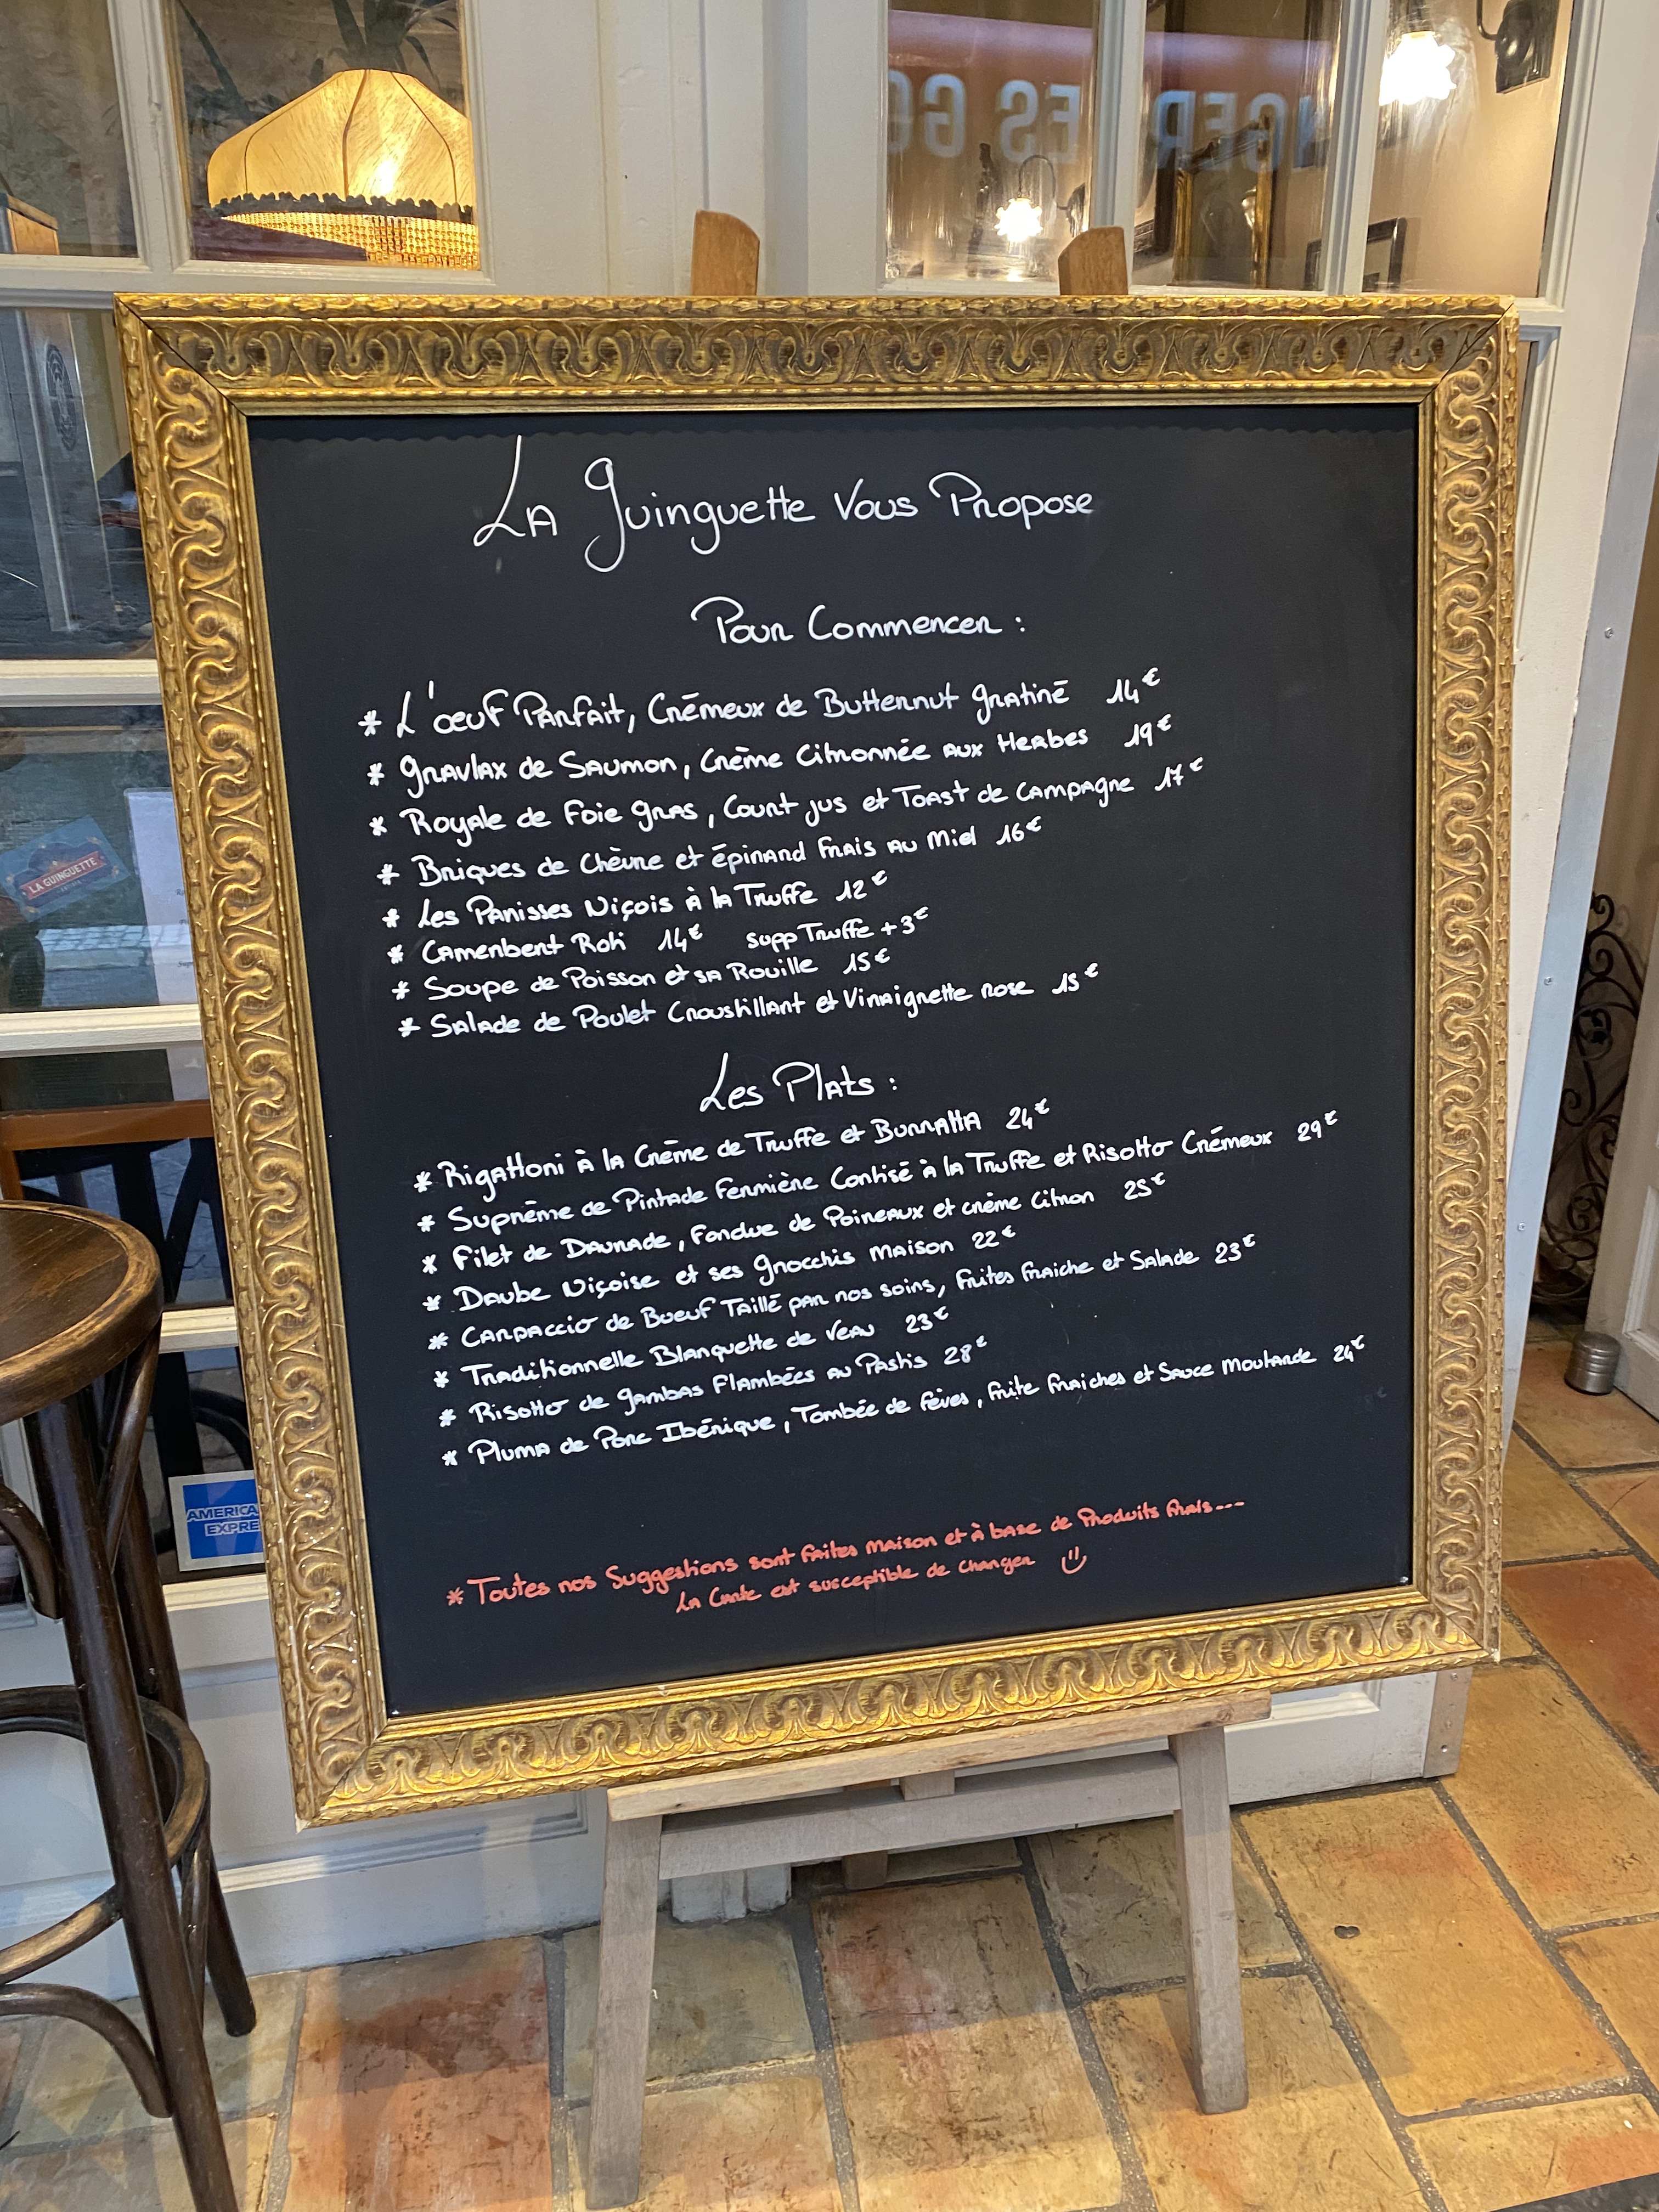 NGER ES GO
La Guinguette Vous Propose
Pour Commencer :
* L'oeuf Parfait, Crémeux de Butternut gratiné 14€
* Gravlax de Saumon, Crème Citronnée aux Herbes 19€
* Royale de Foie gras, Court jus et Toast de Campagne 17€
* Briques de Chèvre et épinard Frais au Miel 16€
* Les Panisses Niçois à la Truffe 12€
* Camenbert Roti 14€ supp Truffe +3€
* Soupe de Poisson et sa Rouille 15€
* Salade de Poulet Croustillant et Vinaigrette rose 15€
Les Plats :
* Rigattoni à la Crème de Truffe et Burratta 24€
* Suprême de Pintade Fermière Contisé à la Truffe et Risotto Crémeux 29€
* Filet de Daurade, Fondue de Poireaux et crème Citron 25€
* Daube Niçoise et ses gnocchis Maison 22€
* Carpaccio de Boeuf Taillé par nos soins, Frites Fraiche et Salade 23€
* Traditionnelle Blanquette de Veau 23€
* Risotto de gambas Flambées au Pastis 28€
* Pluma de Porc Ibérique, Tombée de fèves, Frite Fraiches et Sauce Moutarde 24€
* Toutes nos Suggestions sont faites maison et à base de Produits frais...
La Carte est susceptible de changer
LA GUINGUETTE
AMERICA
EXPRE